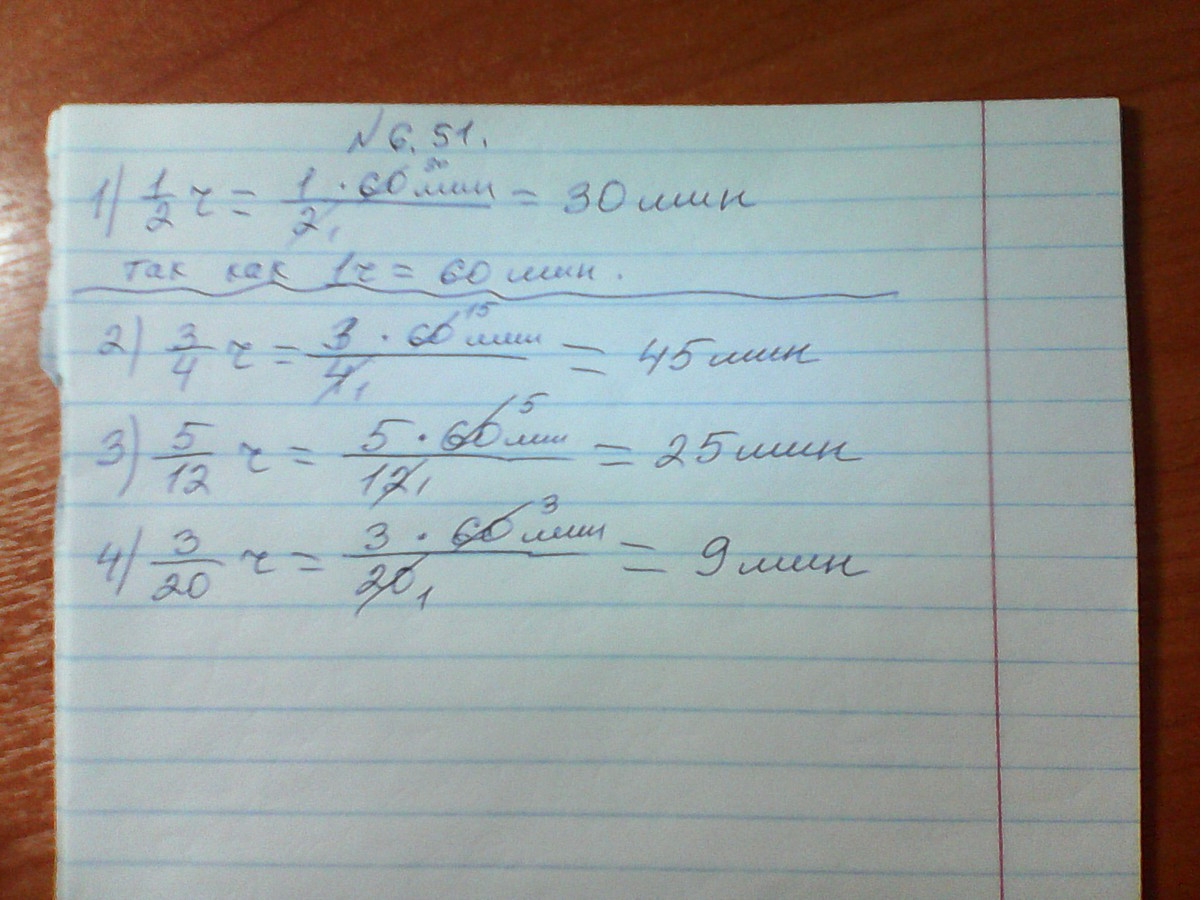 № 6.51.
1) 1/2 ч = 1 · 60 30 мин / 2 1 = 30 мин
так как 1ч = 60 мин.
2) 3/4 ч = 3 · 60 15 мин / 4 1 = 45 мин
3) 5/12 ч = 5 · 60 5 мин / 12 1 = 25 мин
4) 3/20 ч = 3 · 60 3 мин / 20 1 = 9 мин